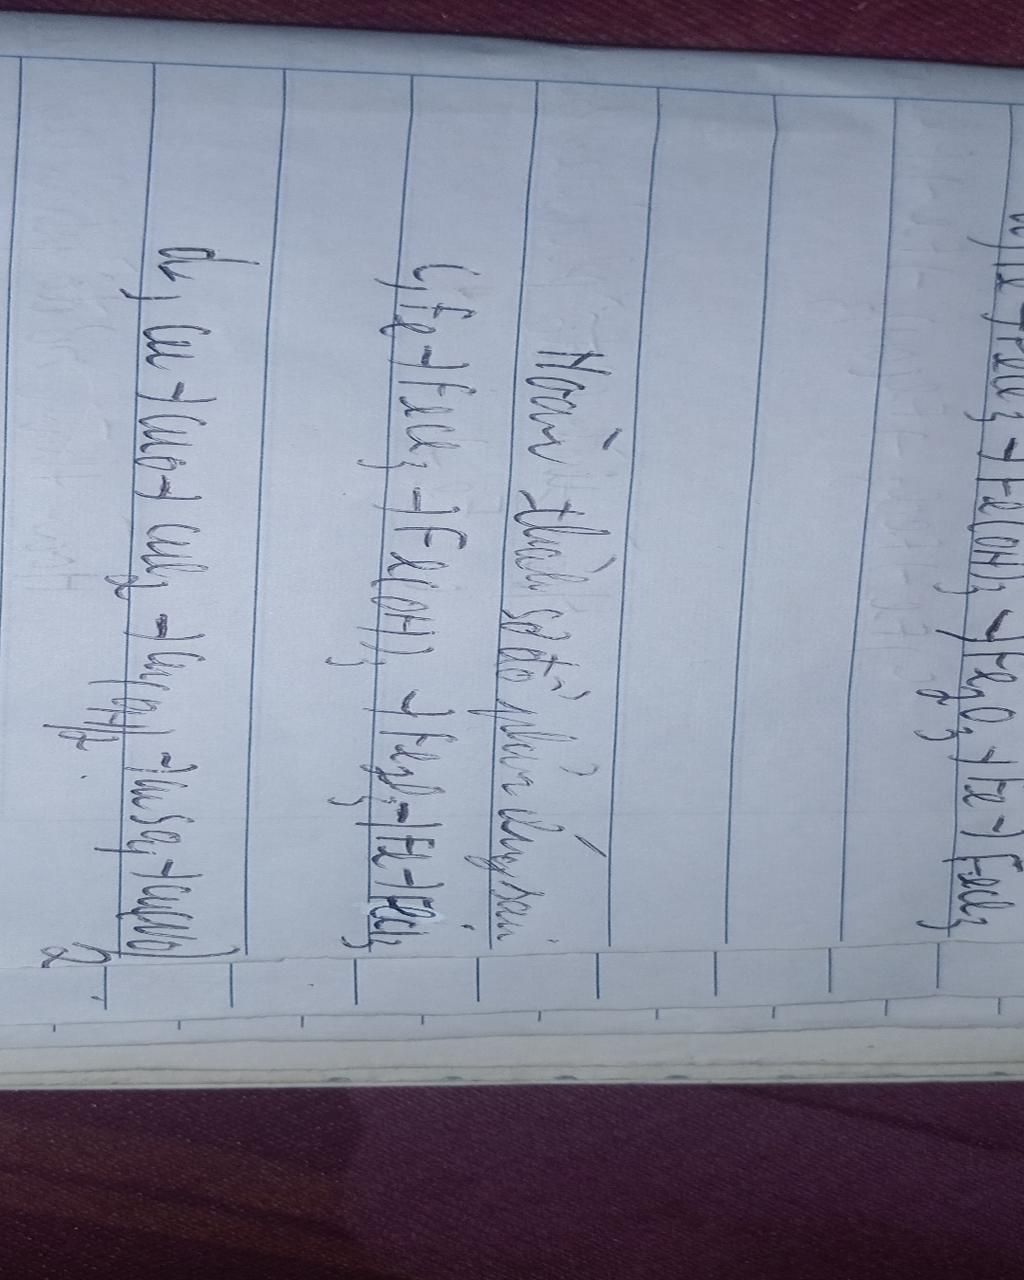 a, Fe → FeCl3 → Fe(OH)3 → Fe2O3 → Fe → FeCl3
Hoàn thành sơ đồ phản ứng sau
C, Fe → FeCl3 → Fe(OH)3 → Fe2O3 → Fe → FeCl3
d, Cu → CuO → CuCl2 → Cu(OH)2 → CuSO4 → Cu(NO3)2